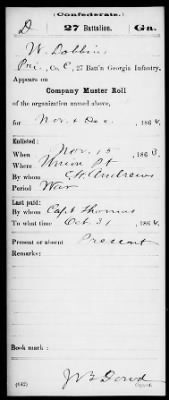 (Confederate.)
D 27 Battalion. Ga.
W. Dobbin
Pri, Co. C, 27 Batt'n Georgia Infantry.
Appears on
Company Muster Roll
of the organization named above,
for Nov. & Dec., 1864.
Enlisted:
When Nov. 15, 1863.
Where Union Pt
By whom C.H. Andrews
Period War
Last paid:
By whom Capt Thomas
To what time Oct 31, 1864.
Present or absent Present
Remarks:
Book mark:
(642) Copyist.